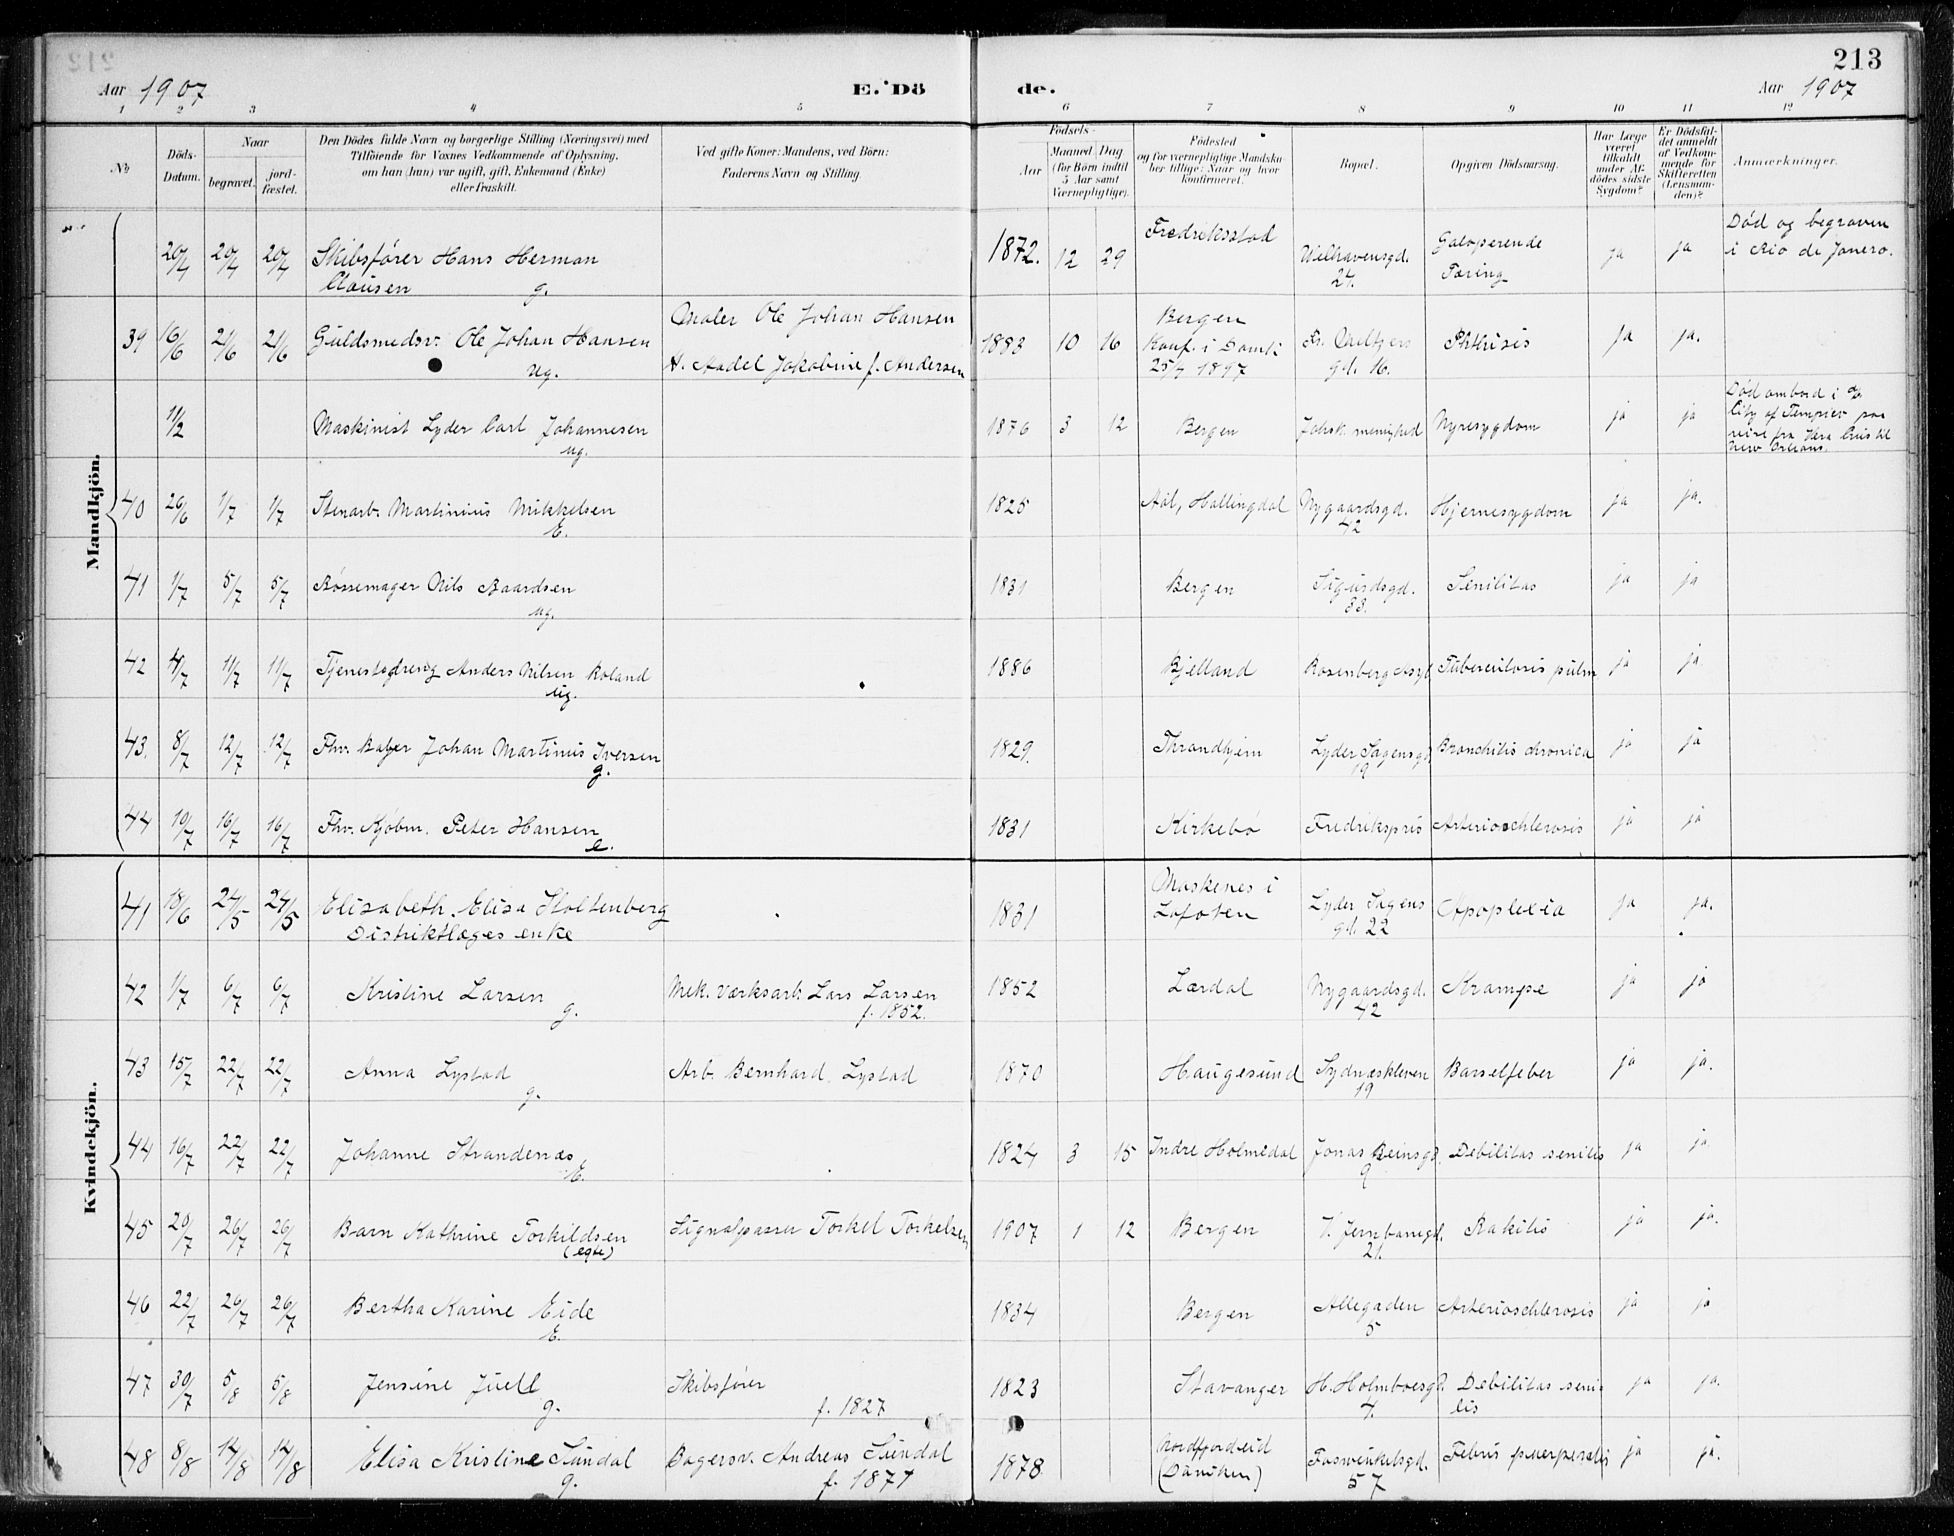 213
Aar 1907 E. Dö de. Aar 1907
1 2 3 4 5 6 7 8 9 10 11 12
No
Döds-Datum.
Naar
begravet.
jordfæstet.
Den Dödes fulde Navn og borgerlige Stilling (Næringsvei) med
Tilföiende for Voxnes Vedkommende af Oplysning,
om han (hun) var ugift, gift, Enkemand (Enke)
eller fraskilt.
Ved gifte Koner: Mandens, ved Börn:
Faderens Navn og Stilling.
Födsels-
Aar
Maaned Dag
(for Börn indtil
5 Aar samt
Værnepligtige).
Födested
og for værnepligtige Mandska-
ber tillige: Naar og hvor
konfirmeret.
Bopæl.
Opgiven Dödsaarsag.
Har Læge
været
tilkaldt
under Af-
dödes sidste
Sygdom?
Er Dödsfal-
det anmeldt
af Vedkom-
mende for
Skifteretten
(Lensman-
den)?
Anmærkninger.
Mandkjön.
20/4 20/4 20/4 Skibsfører Hans Herman Clausen g. 1872. 12 29 Fredriksstad Welhavensgd. 24. Galoperende Tæring ja ja Død og begraven i Rio de Janero.
39 16/6 21/6 21/6 Guldsmedsv. Ole Johan Hansen ug. Maler Ole Johan Hansen H. Aadel Jakobine f. Andersen 1883 10 16 Bergen Konf. i Domk. 25/4 1897 Fr. Meltzers gd. 16. Phthisis ja ja.
11/2 Maskinist Lyder Carl Johannesen ug. 1876 3 12 Bergen Johsk. menighed Nyresygdom ja ja Død ombord i City of paa reise fra Vera Crus til New Orleans.
40 26/6 1/7 1/7 Stenarb. Martinius Mikkelsen E. 1825 Aal, Hallingdal Nygaardsgd. 42 Hjernesygdom ja ja.
41 1/7 5/7 5/7 Bøssemager Nils Baardsen ug. 1831 Bergen Sigurdsgd. 33. Senilitas ja ja
42 4/7 11/7 11/7 Tjenestedreng Anders Nilsen Roland ug. 1886 Bjelland Rosenberg Asyl Tuberculosis pulm ja ja
43. 8/7 12/7 12/7 Fhv. Bager Johan Martinus Iversen g. 1829. Throndhjem Lyder Sagensgd. 19 Bronchitis chronica ja ja
44 10/7 16/7 16/7 Fhv. Kjøbm. Peter Hansen e. 1831 Kirkebø Fredrikspris Arterioschlerosis ja ja
Kvindekjön.
41 18/6 24/5 24/5 Elisabeth Elisa Stoltenberg Distriktlæges enke 1831 Moskenes i Lofoten Lyder Sagens gd. 22 Apoplexia ja ja.
42 1/7 6/7 6/7 Kristine Larsen g. Mek. Værksarb. Lars Larsen f. 1852. 1852 Lærdal Nygaardsgd. 42 Krampe ja ja
43 15/7 22/7 22/7 Anna Lystad g. Arb. Bernhard Lystad 1870 Haugesund Sydnæskleven 19 Barselfeber ja ja.
44 16/7 22/7 22/7 Johanne Strandenæs E. 1824 3 15 Indre Holmedal Jonas Reinsgd. 9 Debilitas senilis ja ja
45 20/7 26/7 26/7 Barn Kathrine Torkildsen (egte) Signalpasser Torkel Torkelsen 1907 1 12 Bergen V. Jernbanegd. 21. Rakitis ja ja.
46 22/7 26/7 26/7 Bertha Karine Eide E. 1834 Bergen Allegaden 5 Arterioschlerosis ja ja
47 30/7 5/8 5/8 Jensine Juell g. Skibsfører f. 1827 1823 Stavanger H. Holmboesgd. 4. Debilitas senilis ja ja.
48 8/8 14/8 14/8 Elisa Kristine Sundal g. Bagersv. Andreas Sundal f. 1871 1878 Nordfjordeid Foswinkelsgd. 57 Febris puerperalis ja ja.